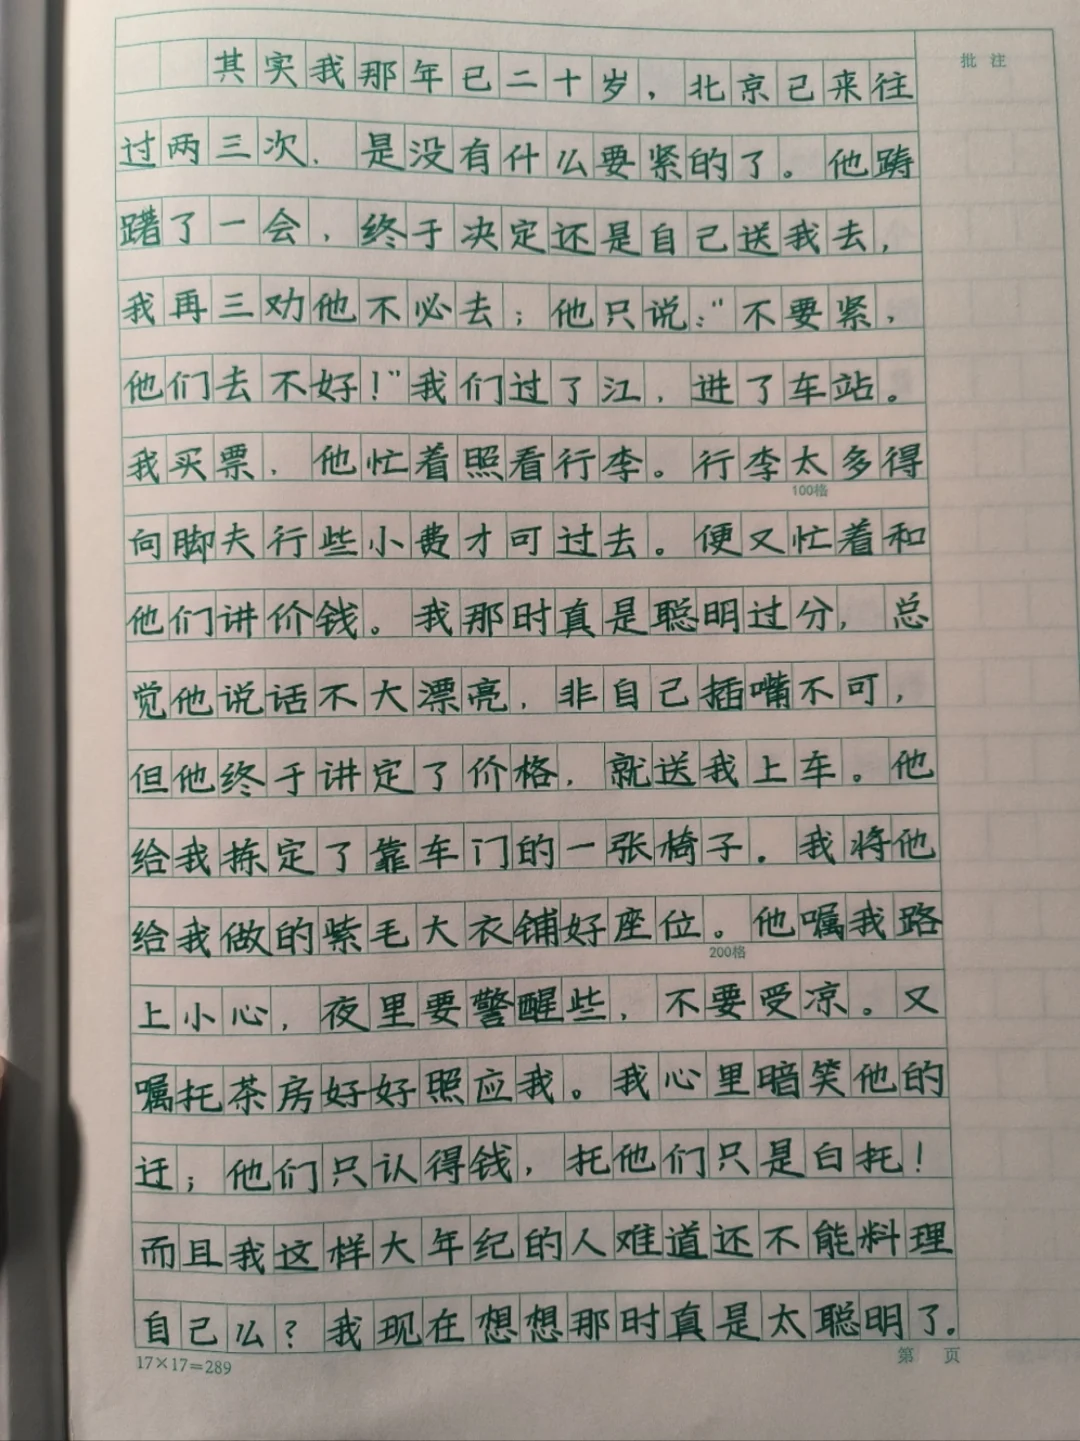 批 注
其实我那年已二十岁，北京已来往
过两三次，是没有什么要紧的了。他踌
躇了一会，终于决定还是自己送我去，
我再三劝他不必去；他只说："不要紧，
他们去不好！"我们过了江，进了车站。
我买票，他忙着照看行李。行李太多得
100格
向脚夫行些小费才可过去。便又忙着和
他们讲价钱。我那时真是聪明过分，总
觉他说话不大漂亮，非自己插嘴不可，
但他终于讲定了价格，就送我上车。他
给我拣定了靠车门的一张椅子。我将他
给我做的紫毛大衣铺好座位。他嘱我路
200格
上小心，夜里要警醒些，不要受凉。又
嘱托茶房好好照应我。我心里暗笑他的
迂；他们只认得钱，托他们只是白托！
而且我这样大年纪的人难道还不能料理
自己么？我现在想想那时真是太聪明了。
17×17=289
第 页